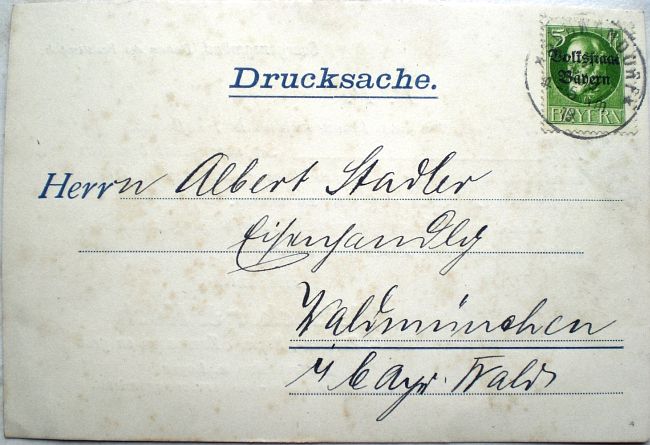 Drucksache.
5
Volksstaat
Bayern
BAYERN
Herrn Albert Stadler
Eisenhandlg
Waldmünchen
i/ bayr. Wald